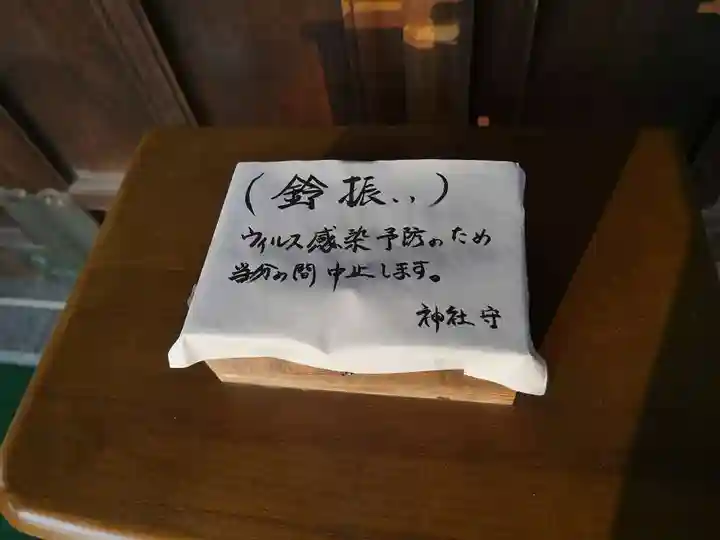 （鈴振い）
ウィルス感染予防のため
当分の間中止します。
神社守